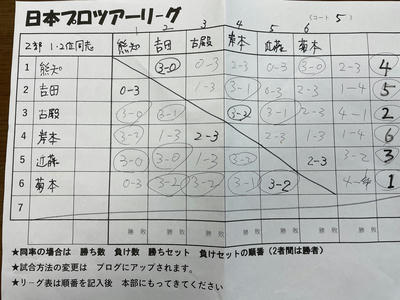 日本プロツアーリーグ (コート 5)
1 2 3 4 5 6
2部 1・2位同志 熊知 吉田 古殿 岸本 近藤 菊本
1 熊知 3-0 0-3 2-3 0-3 3-0 2-3 4
2 吉田 0-3 1-3 3-1 2-3 1-4 5
3 古殿 3-0 3-1 3-2 3-1 2-3 4-1 2
4 岸本 3-2 1-3 2-3 2-3 1-3 1-4 6
5 近藤 3-0 3-0 1-3 3-2 2-3 3-2 3
6 菊本 0-3 3-2 3-2 3-1 3-2 1
7
勝 敗 勝 敗 勝 敗 勝 敗 勝 敗 勝 敗
★同率の場合は 勝ち数 負け数 勝ちセット 負けセットの順番(2者間は勝者)
★試合方法の変更は ブログにアップされます。
★リーグ表は順番を記入後 本部にもってきてください